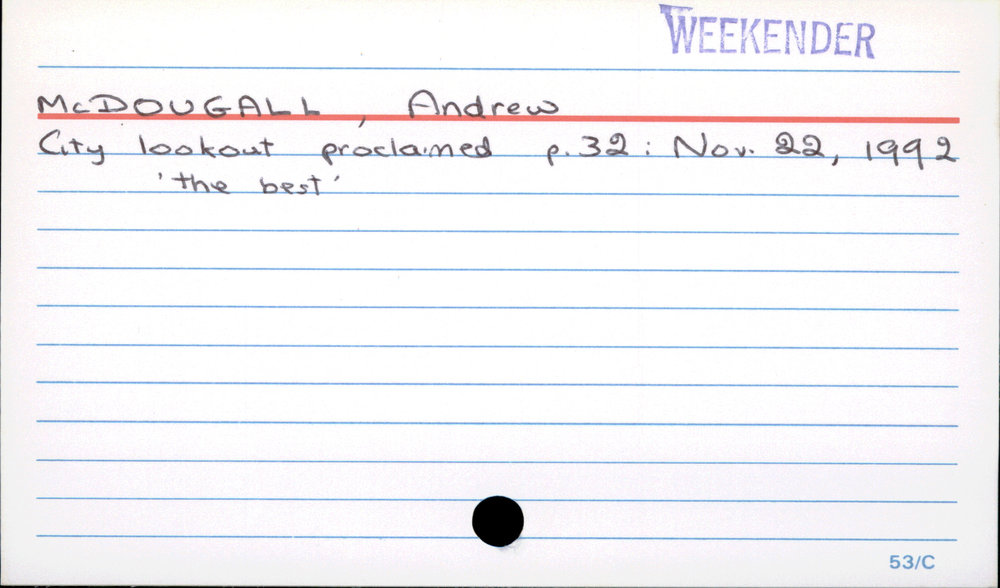 WEEKENDER
McDOUGALL, Andrew
City lookout proclaimed p.32: Nov. 22, 1992
'the best'
53/C